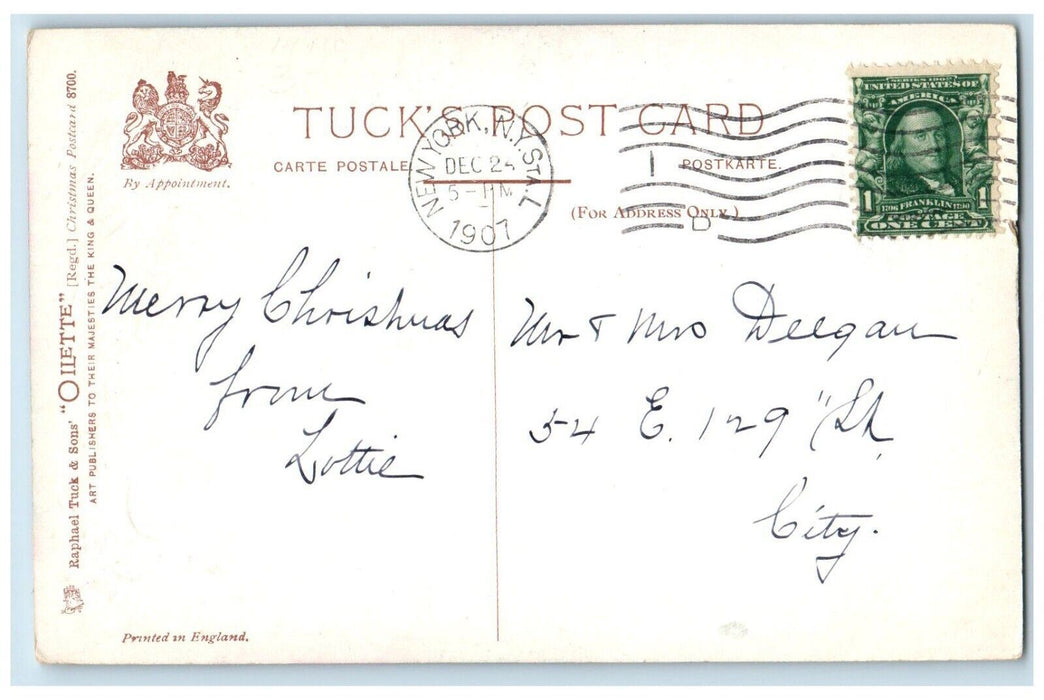 TUCK'S POST CARD
CARTE POSTALE. POSTKARTE.
(FOR ADDRESS ONLY.)
By Appointment.
NEW YORK, N.Y. STA. L
DEC 24
1907
1
D
SERIES 1902
UNITED STATES OF
AMERICA
1706 FRANKLIN 1790
1 POSTAGE 1
ONE CENT
Raphael Tuck & Sons' "OILETTE" [Regd.] Christmas Postcard 8700.
ART PUBLISHERS TO THEIR MAJESTIES THE KING & QUEEN.
Merry Christmas
from
Lottie
Mr & Mrs Deegan
54 E. 129 " St
City.
Printed in England.